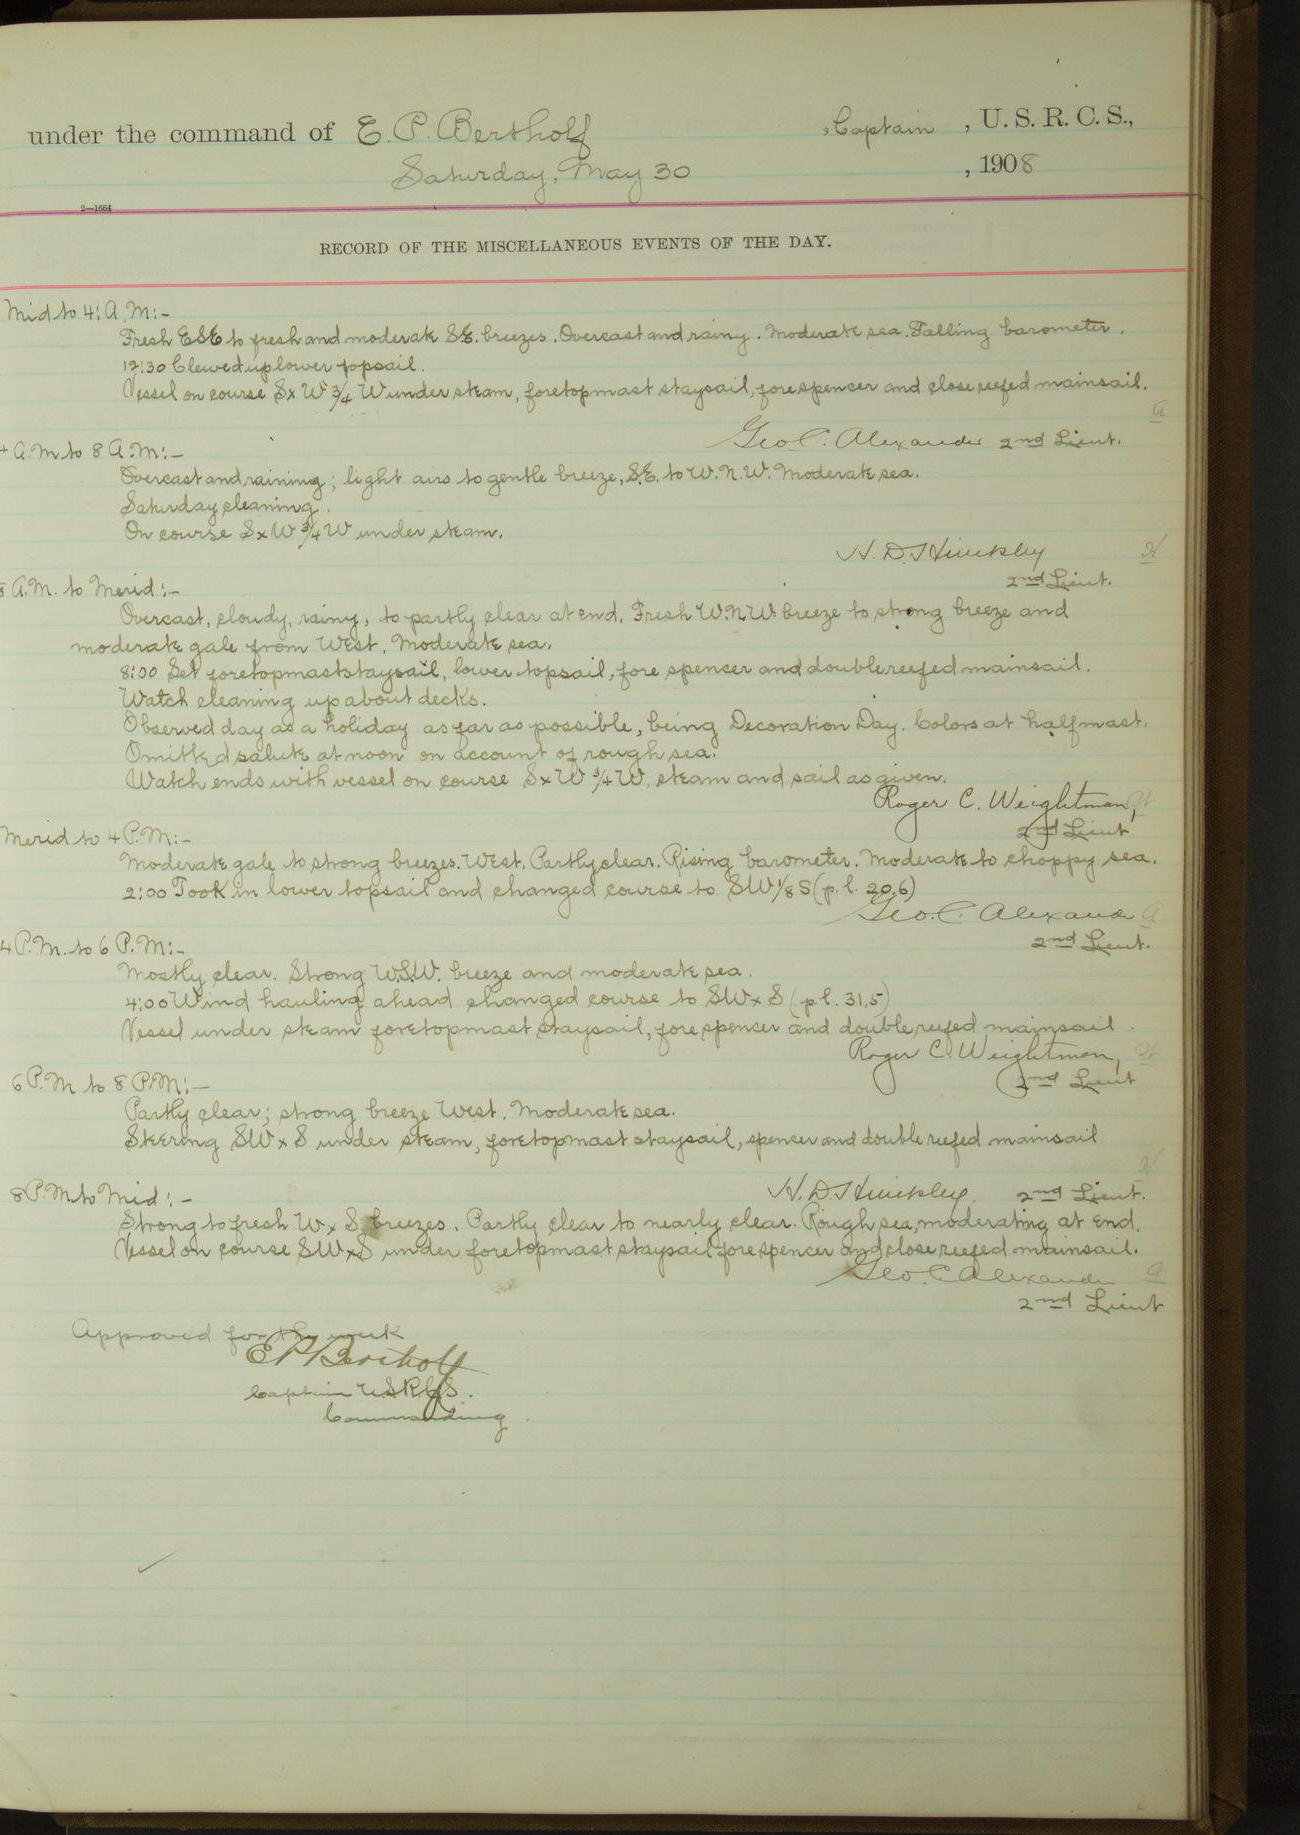 under the command of E. P. Bertholf , Captain , U. S. R. C. S.,
Saturday, May 30 , 1908
2—1664
RECORD OF THE MISCELLANEOUS EVENTS OF THE DAY.
Mid to 4: A.M:-
Fresh ESE to fresh and moderate SE. breezes. Overcast and rainy. Moderate sea. Falling barometer.
12:30 Clewed up lower topsail.
Vessel on course SxW 3/4 W under steam, foretopmast staysail, fore spencer and close reefed mainsail.
A
Geo. C. Alexander 2nd Lieut.
4 A.M to 8 A.M:-
Overcast and raining; light airs to gentle breeze, S.E. to W.N.W. Moderate sea.
Saturday cleaning.
On course SxW 3/4 W under steam.
H. D. Hinckley H
2nd Lieut.
8 A.M. to Merid:-
Overcast, cloudy, rainy, to partly clear at end. Fresh W.N.W. breeze to strong breeze and
moderate gale from West. Moderate sea.
8:00 Set foretopmast staysail, lower topsail, fore spencer and double reefed mainsail.
Watch cleaning up about decks.
Observed day as a holiday as far as possible, being Decoration Day. Colors at half mast.
Omitted salute at noon on account of rough sea.
Watch ends with vessel on course SxW 3/4 W, steam and sail as given.
Roger C. Weightman,
2nd Lieut
Merid to 4 P.M:-
Moderate gale to strong breezes. West. Partly clear. Rising barometer. Moderate to choppy sea.
2:00 Took in lower topsail and changed course to SW 1/8 S (p.l. 20.6)
Geo. C. Alexander A
2nd Lieut.
4 P.M. to 6 P.M:-
Mostly clear. Strong W.S.W. breeze and moderate sea.
4:00 Wind hauling ahead changed course to SWxS (p.l. 31.5)
Vessel under steam foretopmast staysail, fore spencer and double reefed mainsail.
Roger C. Weightman,
2nd Lieut
6 P.M to 8 P.M:-
Partly clear; strong breeze West. Moderate sea.
Steering SWxS under steam, foretopmast staysail, spencer and double reefed mainsail
H
8 P.M. to Mid:- H. D. Hinckley. 2nd Lieut.
Strong to fresh WxS breezes. Partly clear to nearly clear. Rough sea, moderating at end.
Vessel on course SWxS under foretopmast staysail fore spencer and close reefed mainsail.
Geo. C. Alexander A
2nd Lieut
Approved for the week
E P Bertholf
Captain U.S.R.C.S.
Commanding